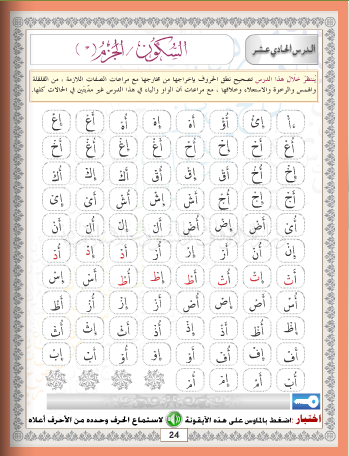 الدرس الحادي عشر
السُّكُون / الجَزْم ( ْ )
يُنتظر خلال هذا الدرس تصحيح نطق الحروف بإخراجها من مخارجها مع مراعات الصفات اللازمة ، من القلقلة
والهمس والرخوة والاستعلاء وخلافها ، مع مراعات أن الواو والياء في هذا الدرس غير مدّيتين في الحالات كلها.
ءَأْ إِئْ أُؤْ أَهْ إِهْ أُهْ أَعْ إِعْ
أُعْ أَحْ إِحْ أُحْ أَغْ إِغْ أُغْ أَخْ
إِخْ أُخْ أَقْ إِقْ أُقْ أَكْ إِكْ أُكْ
أَجْ إِجْ أُجْ أَشْ إِشْ أُشْ أَىْ إِىْ
أُىْ أَضْ إِضْ أُضْ أَلْ إِلْ أُلْ أَنْ
إِنْ أُنْ أَرْ إِرْ أُرْ أَدْ إِدْ أُدْ
أَتْ إِتْ أُتْ أَطْ إِطْ أُطْ أَسْ إِسْ
أُسْ أَصْ إِصْ أُصْ أَزْ إِزْ أُزْ أَظْ
إِظْ أُظْ أَذْ إِذْ أُذْ أَثْ إِثْ أُثْ
أَفْ إِفْ أُفْ أَوْ إِوْ أُوْ أَبْ إِبْ
أُبْ أَمْ إِمْ أُمْ
اختبار :اضغط بالماوس على هذه الأيقونة لاستماع الحرف وحدده من الأحرف أعلاه
24